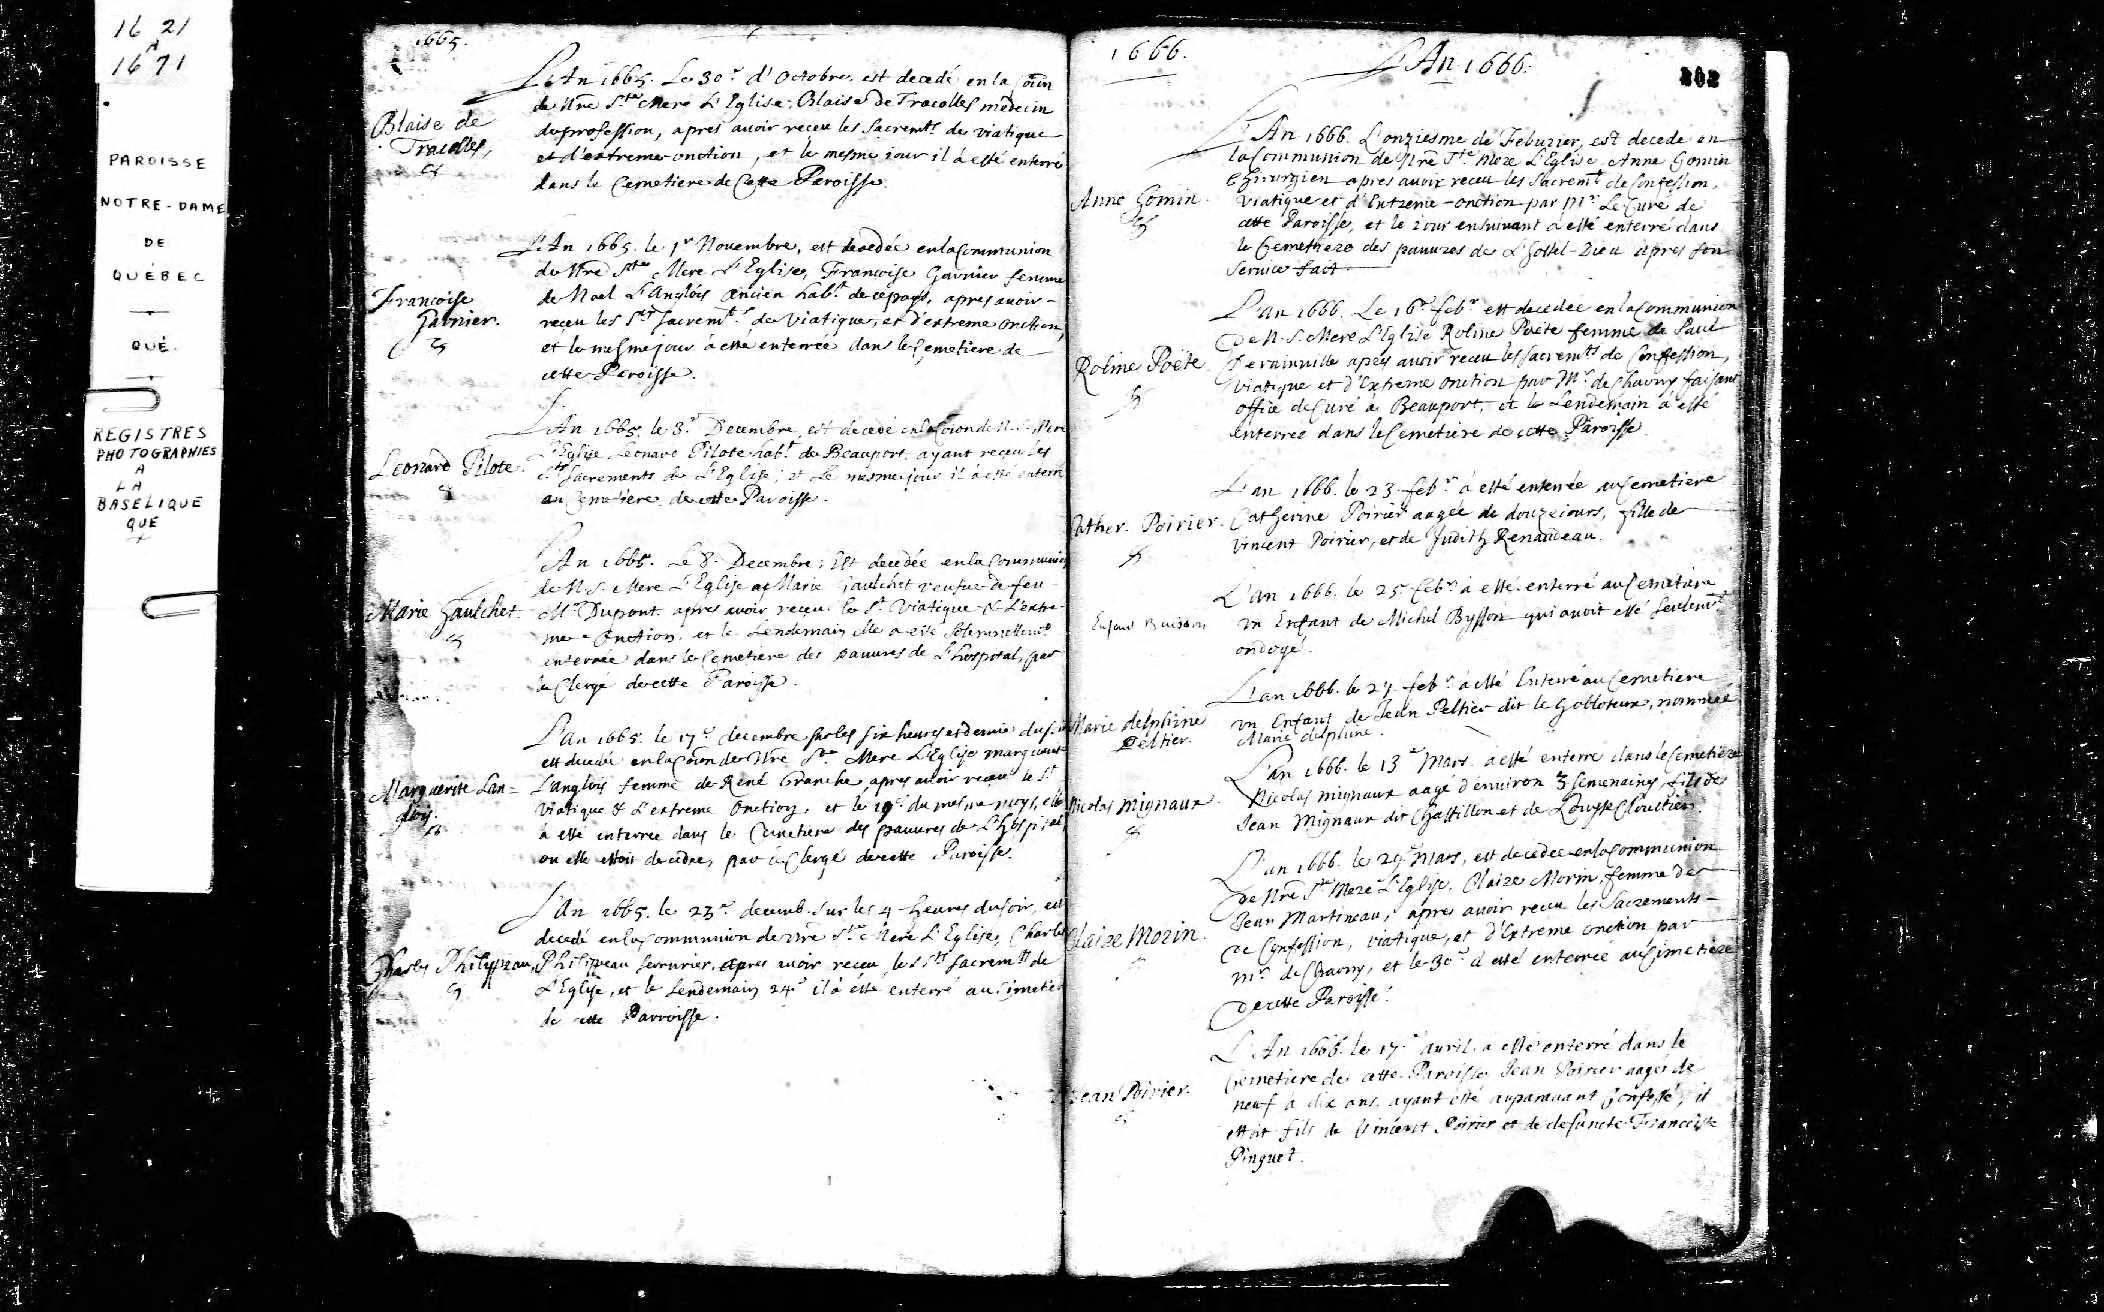 16 21
A
16 71
PAROISSE
NOTRE-DAME
DE
QUÉBEC
QUÉ.
REGISTRES
PHOTOGRAPHIES
A
LA
BASELIQUE
QUE
1665.
Blaise de
Tracolles,
L'An 1665. Le 30e d'Octobre est decedé en la Coion
de Nre Ste Mere L'Eglise, Blaise de Tracolles medecin
de profession, apres avoir receu les Sacremts de viatique
et d'extreme onction, et le mesme iour il à esté enterré
dans le Cemetiere de Cette Paroisse.
Francoise
Garnier.
L'An 1665. le 1er Novembre, est decedée en la Communion
de Nre Ste Mere L'Eglise, Françoise Garnier femme
de Noel L'Anglois Ancien habt de ce pays, apres avoir
reçeu les Sts Sacremts de Viatique, et d'extreme onction,
et le mesme jour à esté enterrée dans le Cemetiere de
cette Paroisse.
Leonard Pilote.
L'An 1665. le 3e Decembre, est decedé en la Coion de N. S. Mere
L'Eglise Leonard Pilote habt de Beauport, ayant reçeu les
Sts Sacrements de L'Eglise; et Le mesme jour il à esté enterré
au Cemetiere de cette Paroisse.
Marie Gaulchet.
L'An 1665. Le 8e Decembre, Est decedée en la Communion
de N. S. Mere L'Eglise Marie Gaulchet veufue de feu
Mr Dupont apres avoir reçeu le St Viatique & L'extre-
me Onction, et le Lendemain elle a esté solemnellemt
enterrée dans le Cemetiere des pauures de L'hospital, par
le Clergé de cette Paroisse.
Marguerite Lan=
glois.
L'an 1665. le 17e decembre sur les six heures et demie du soir
est decedée en la Coion de Nre Ste Mere L'Eglise marguerite
L'Anglois femme de René Branche, apres avoir reçeu le St
Viatique & L'extreme Onction, et le 19e du mesme moys, elle
à esté enterree dans le Cemetiere des pauures de L'hospital,
ou elle estoit decedée, par le Clergé de cette Paroisse.
Charles Philippeau,
L'An 1665. le 23e decemb. sur les 4 heures du soir, est
decedé en la Communion de nre Ste Mere L'Eglise, Charles
Philippeau serrurier, apres avoir receu les Sts Sacremts de
L'Eglise, et le Lendemain 24e il à esté enterré au Cimetiere
de cette Parroisse.
1666.
L'An 1666.
202
Anne Gomin.
L'An 1666. L'onziesme de Feburier, est decedé en
la Communion de Nre Ste Mere L'Eglise Anne Gomin
Chirurgien apres avoir receu les Sacremts de Confession,
Viatique et d'Extreme-onction par Mr Le Curé de
cette Paroisse, et le iour ensuivant a esté enterré dans
le Cemetiere des pauures de L'Hostel-Dieu apres son
Service fait.
Roline Poëte
L'an 1666. Le 16e febr est decedée en la Communion
De N. S. Mere L'Eglise Roline Poëte femme de Paul
Derainville apres avoir receu les sacremts de Confession,
Viatique et d'Extreme onction par Mr de Chauny faisant
office de Curé à Beauport, et le Lendemain a esté
enterrée dans le Cemetiere de cette Paroisse.
Cather. Poirier.
L'an 1666. le 23 febr à esté enterrée au Cemetiere
Catherine Poirier aagée de douze iours, fille de
Vincent Poirier, et de Judith Renaudeau.
Enfant Buisson
L'an 1666. le 25e febr à esté enterré au Cemetiere
vn Enfant de Michel Bysson qui avoit esté seulemt
ondoyé.
Marie delphine
Peltier.
L'an 1666. le 27 febr à esté Enterré au Cemetiere
vn Enfant de Jean Peltier dit le Gobloteur, nommée
Marie delphine.
Nicolas mignaux.
L'an 1666. le 13e Mars à esté enterré dans le Cemetiere
Nicolas mignaux aagé d'environ 3 semaines fils de
Jean Mignaux dit Chastillon et de Louyse Cloutier.
Claize Morin.
L'an 1666. le 29e Mars, est decedée en la Communion
De Nre Ste Mere L'Eglise, Claize Morin, femme de
Jean Martineau, apres avoir receu les Sacrements
de Confession, Viatique, et d'Extreme onction par
Mr de Chauny, et le 30e à esté enterrée au Cimetiere
de cette Paroisse.
Jean Poirier.
L'An 1666. le 17e auril a esté enterré dans le
Cemetiere de cette Paroisse Jean Poirier aagé de
neuf à dix ans, ayant esté auparauant Confessé, il
estoit fils de Vincent Poirier et de defuncte Francoise
Pinguet.